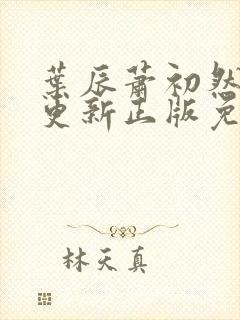 葉辰蕭初然
更新正版免
林天真